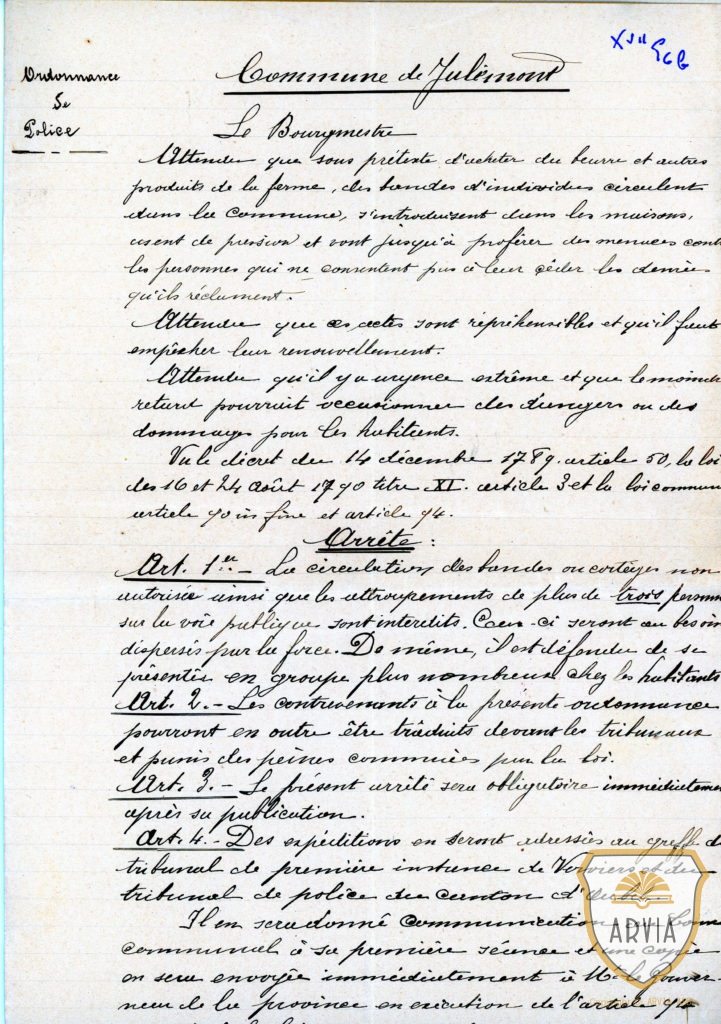 Ordonnance
de
Police
Commune de Julémont
Le Bourgmestre
Attendu que sous prétexte d'acheter du beurre et autres
produits de la ferme, des bandes d'individus circulent
dans la commune, s'introduisent dans les maisons,
usent de pression et vont jusqu'à proférer des menaces cont
les personnes qui ne consentent pas à leur céder les denrées
qu'ils réclament.
Attendu que ces actes sont répréhensibles et qu'il faut
empêcher leur renouvellement.
Attendu qu'il y a urgence extrême et que le moindre
retard pourrait occasionner des dangers ou des
dommages pour les habitants.
Vu le décret du 14 décembre 1789. article 50, la loi
des 16 et 24 août 1790 titre XI. article 3 et la loi commun
article 90 in fine et article 94.
Arrête :
Art. 1er. - La circulation des bandes ou cortèges non
autorisée ainsi que les attroupements de plus de trois personn
sur la voie publique sont interdits. Ceux-ci seront au besoin
dispersés par la force. De même, il est défendu de se
présenter en groupe plus nombreux chez les habitants
Art. 2. - Les contrevenants à la présente ordonnance
pourront en outre être traduits devant les tribunaux
et punis des peines comminées par la loi.
Art. 3. - Le présent arrêté sera obligatoire immédiateme
après sa publication.
Art. 4. - Des expéditions en seront adressées au greffe d
tribunal de première instance de Verviers et du
tribunal de police du canton d'Aubel.
Il en sera donné communication au Con
communal à sa première séance et une copie
en sera envoyée immédiatement à Mr le Gouver-
neur de la province en exécution de l'article 94
ARVIA